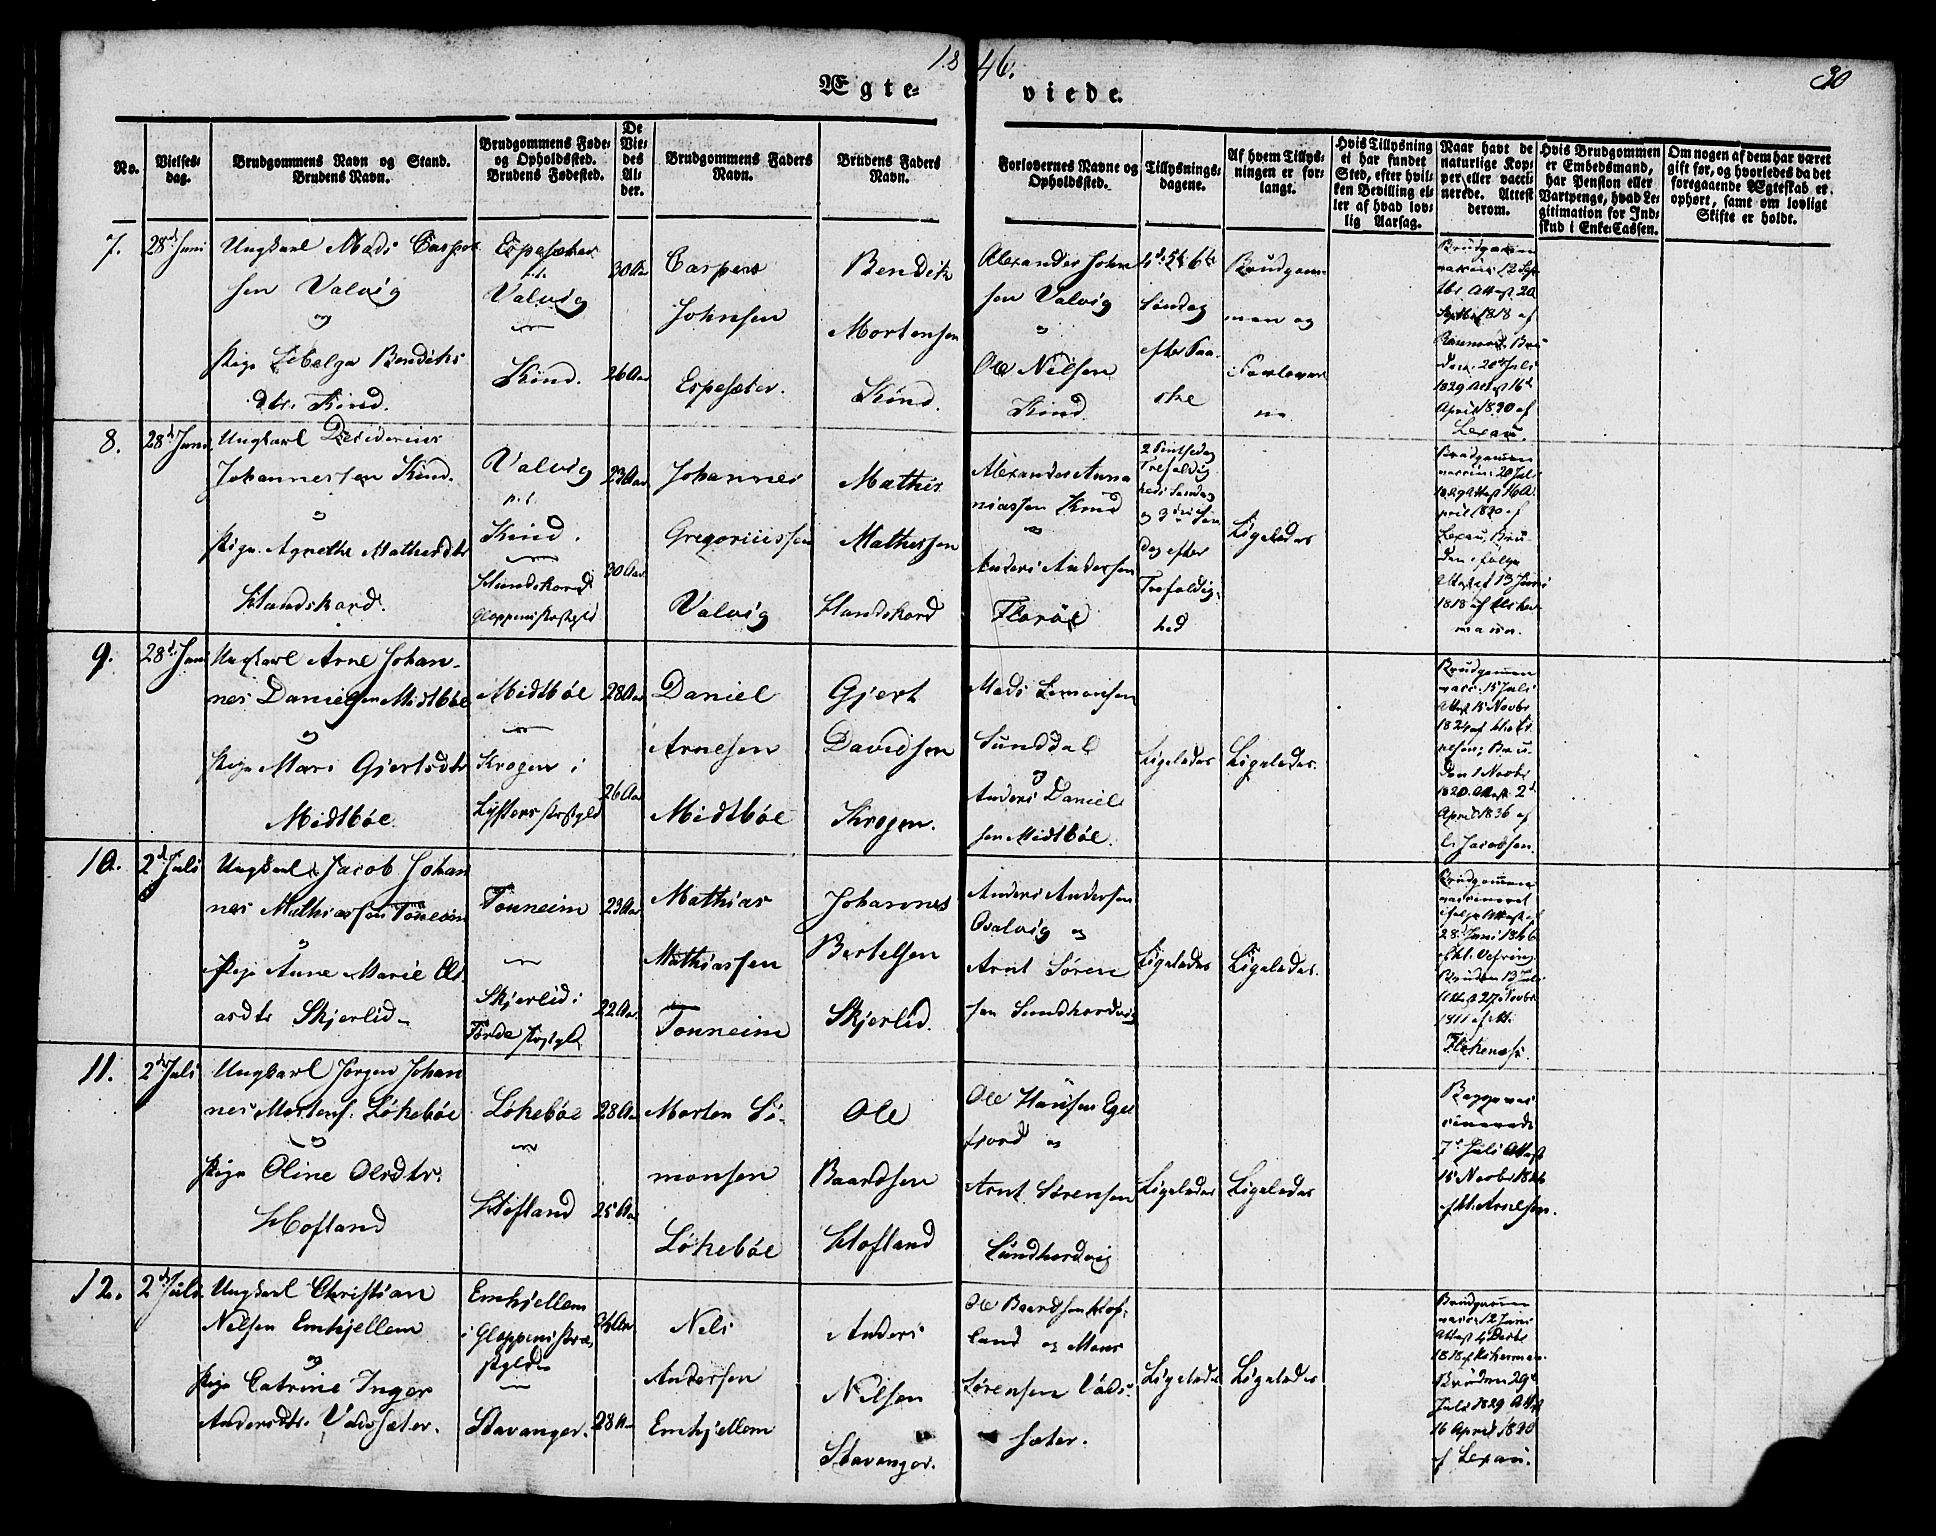 1846.
30
Ægteviede.
No.
Vielses-
dag.
Brudgommens Navn og Stand.
Brudens Navn.
Brudgommens Føde-
og Opholdssted.
Brudens Fødested.
De
Vie-
des
Al-
der.
Brudgommens Faders
Navn.
Brudens Faders
Navn.
Forlovernes Navne og
Opholdssted.
Tillysnings-
dagene.
Af hvem Tillys-
ningen er for-
langt.
Hvis Tillysning
ei har fundet
Sted, efter hvil-
ken Bevilling el-
ler af hvad lov-
lig Aarsag.
Naar havt de
naturlige Kop-
per eller vacci-
nerede. Attest
derom.
Hvis Brudgommen
er Embedsmand,
har Pension eller
Vartpenge, hvad Le-
gitimation for Ind-
skud i Enke-Cassen.
Om nogen af dem har været
gift før, og hvorledes da det
foregaaende Ægteskab er
ophørt, samt om lovligt
Skifte er holdt.
7.
28d Juni
Ungkarl Mads Caspers
sen Valvig
og
Pige Bendiks
dtr. Kind.
Espesæter
p.t.
Valvig
Kind.
30 Aar
26 Aar
Caspers
Johnsen
Espesæter.
Bendik
Mortensen
Kind.
Alexander John
sen Valvig
Ole Nilsen
Kind.
4de 5te 6te
Søndag
efter Paa-
ske
Brudgom-
men og
Forlover-
ne
Brudgommen
vaccin: 12 Sep
tbr. Attest 20
1818 af
Bru
den: 20de Juli
1829 Attest 16de
April 1830 af
Lexau.
8.
28d Juni
Ungkarl Desiderius
Johannessen Kind.
Pige Agnethe Mathesdtr
Handskard.
Valvig
p.t.
Kind.
Handskard
Gloppens Præstgld
23 Aar
30 Aar
Johannes
Gregoriussen
Valvig
Mathis
Mathissen
Handskard
Alexander Anna
niassen Kind
Anders Andersen
Florøe
2 Pintsedag
Trefoldig
heds Søndag
og 3die Søn
dag efter
Trefoldig-
hed
Ligeledes
Brudgommen
vaccin: 20 Juli
1829 Attest 16 A
pril 1830 af
Lexau, Bru-
den ifølge
Attest 13 Juni
1818 af Ucher
mann.
9.
28d Juni
Ungkarl Arne Johan-
nes Danielsen Midtbøe
Pige Mari Gjertsdtr
Midtbøe
Midtbøe
Krogen i
Lysters Præstgld
28 Aar
26 Aar
Daniel
Arnesen
Midtbøe
Gjert
Davidsen
Krogen.
Mads Simonsen
Sunddal
og
Anders Daniel
sen Midtbøe.
Ligeledes
Ligeledes.
Brudgommen
vacc: 15 Juli
Attest 15 Novbr
1824 af
Bru-
den 1 Novbr
1820 Attest 2d
April 1836 af
C. Jacobsen.
10.
2d Juli
Ungkarl Jacob Johan
nes Mathiassen Tonneim
Pige Anne Marie
Skjerlid
Tonneim
Skjerlid i
Førde Præstgld
23 Aar
22 Aar
Mathias
Mathiassen
Tonneim
Johannes
Bertelsen
Skjerlid.
Anders Andersen
Osalvig og
Arnt Søren
sen Sundhordvig
Ligeledes
Ligeledes.
Brudgommen
vaccineret
ifølge Attest af
28 Juni 1846
Bruden 13 Juli
Attest 27 Novbr
11.
2d Juli
Ungkarl Jørgen Johan
nes Mortens. Løkebøe
Pige Oline Olsdtr.
Hofland
Løkebøe
Hofland
28 Aar
25 Aar
Morten Si-
monsen
Løkebøe
Ole
Baardsen
Hofland
Ole Hansen Egel
fjord og
Arnt Sørensen
Sundhordvig
Ligeledes
Ligeledes
Begge vac-
cinerede
7d Juli Attest
15 Novbr 1846
af M. Arnesen.
12.
2d Juli
Ungkarl Christian
Nilsen Emhjellem
og
Pige Catrine Inger
Andersdtr. Vadsæter.
Emhjellem
i Gloppens Præ-
stgld
Stavanger.
28 Aar
Nils
Andersen
Emhjellem
Anders
Nilsen
Stavanger.
Ole Baardsen Hof-
land og Mons
Sørensen Vad-
sæter.
Ligeledes
Ligeledes
Brudgommen
vacc: 12 Juni
Attest 4 Decbr
1818 af Ucherman
Bruden 29de
Juli 1829 Attest
16 April 1830
af Lexau.